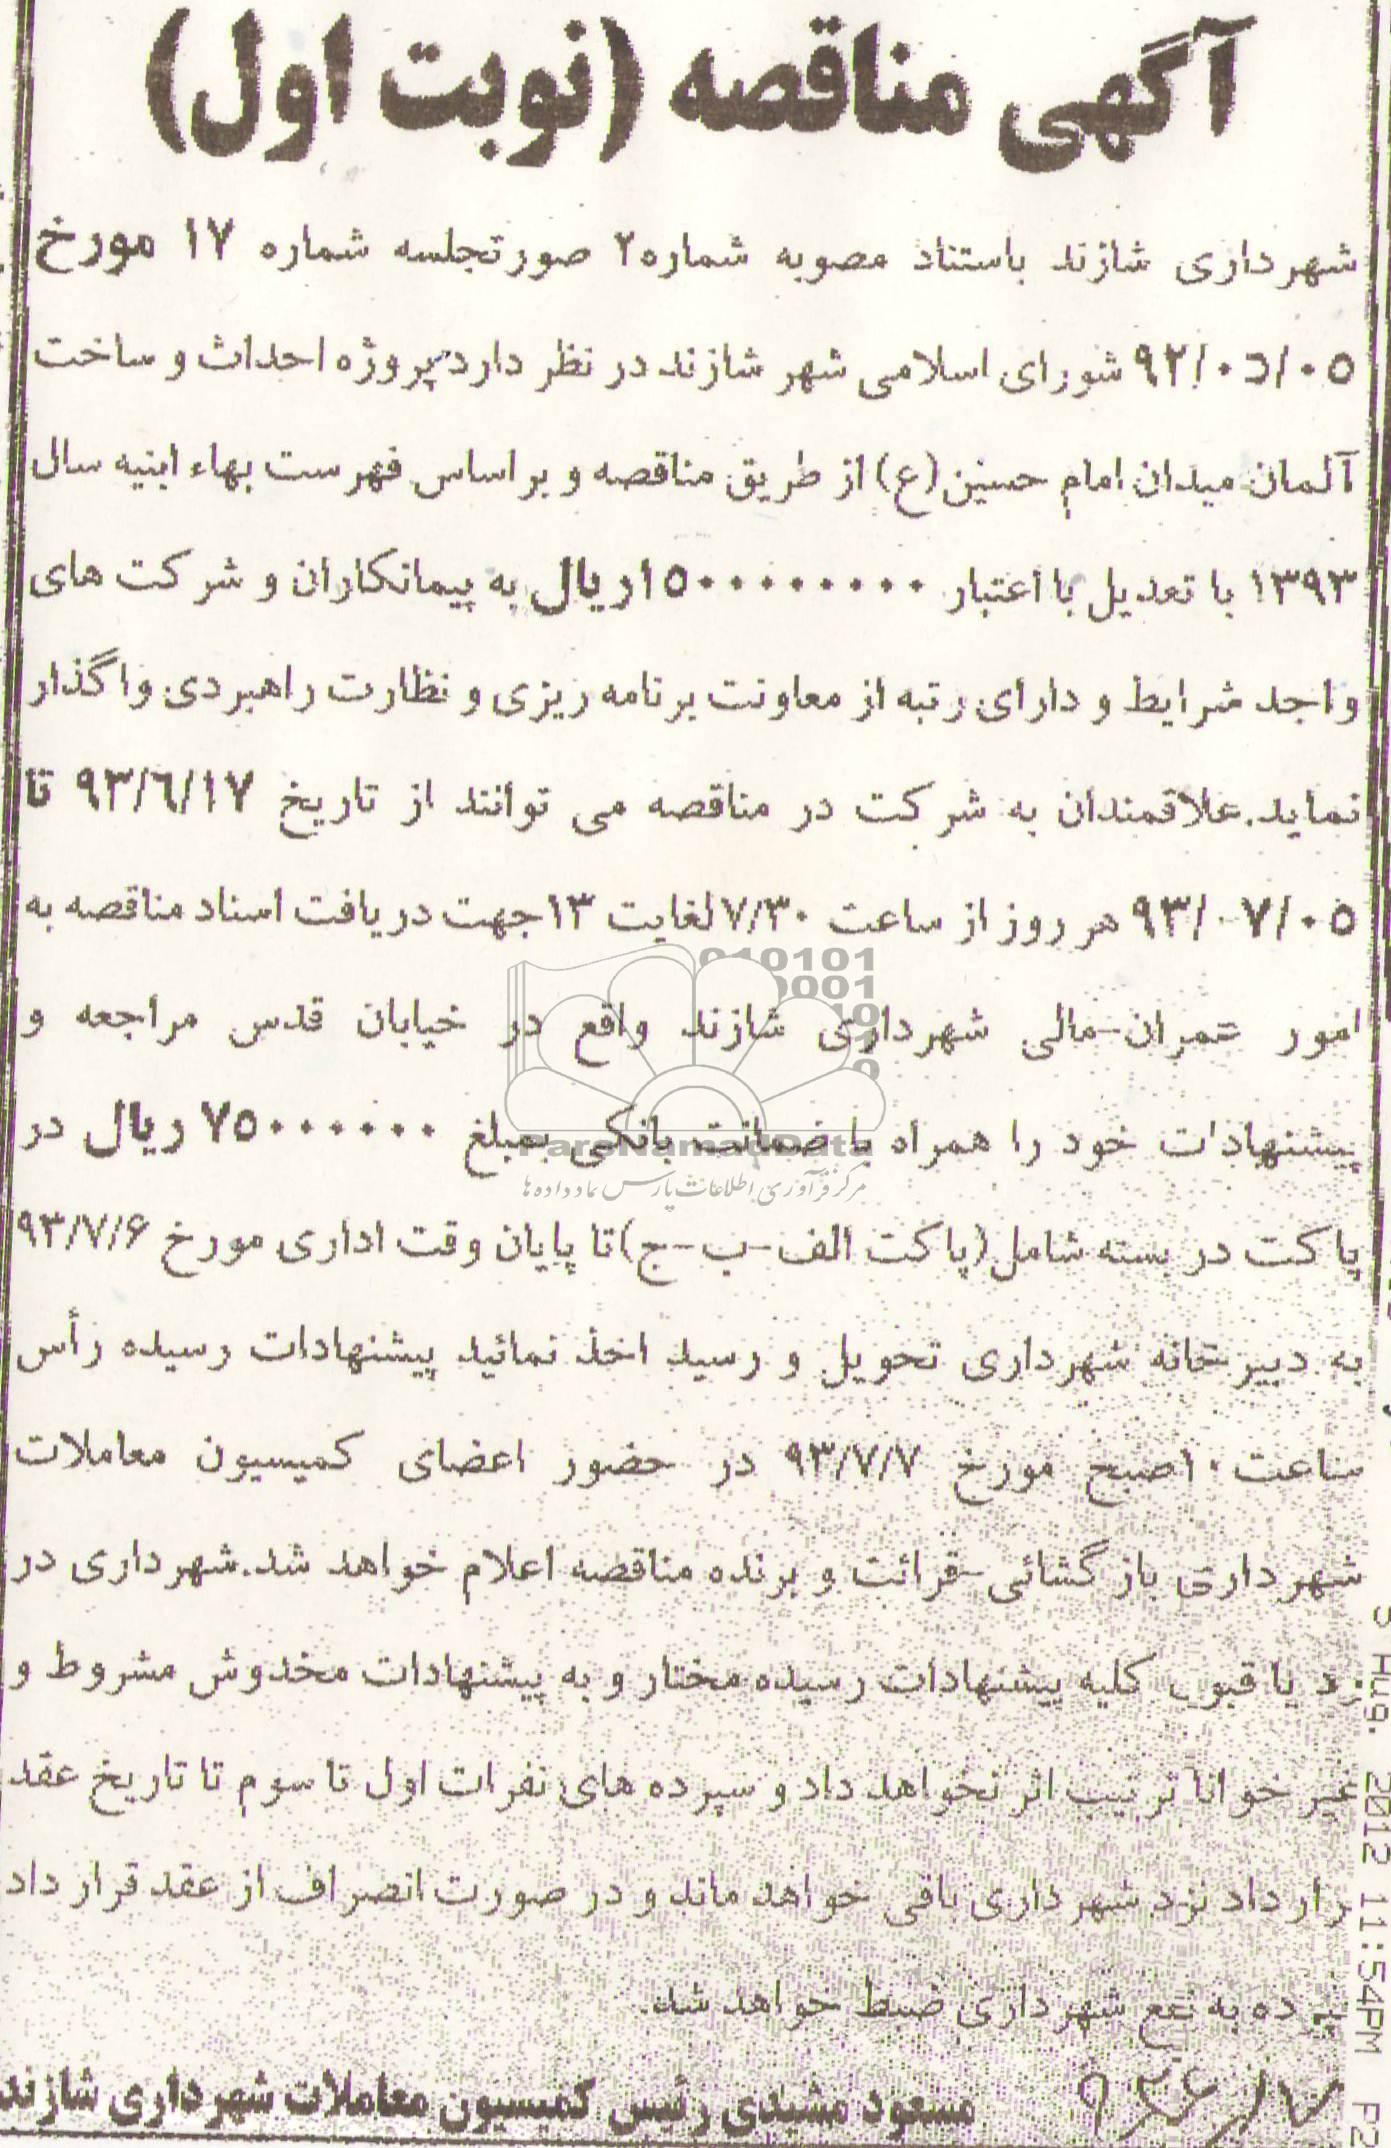 آگهی مناقصه (نوبت اول)
شهرداری شازند باستناد مصوبه شماره۲ صورتجلسه شماره ۱۷ مورخ
۹۲/۰۵/۰۵ شورای اسلامی شهر شازند در نظر دارد پروژه احداث و ساخت
آلمان میدان امام حسین(ع) از طریق مناقصه و بر اساس فهرست بهاء ابنیه سال
۱۳۹۳ با تعدیل با اعتبار ۱۵۰۰۰۰۰۰۰۰۰ریال به پیمانکاران و شرکت های
واجد شرایط و دارای رتبه از معاونت برنامه ریزی و نظارت راهبردی واگذار
نماید.علاقمندان به شرکت در مناقصه می توانند از تاریخ ۹۳/۶/۱۷ تا
۹۳/۰۷/۰۵ هر روز از ساعت ۷/۳۰لغایت ۱۳جهت دریافت اسناد مناقصه به
امور عمران-مالی شهرداری شازند واقع در خیابان قدس مراجعه و
پیشنهادات خود را همراه با ضمانت بانکی بمبلغ ۷۵۰۰۰۰۰۰۰ ریال در
پاکت در بسته شامل(پاکت الف-ب-ج)تا پایان وقت اداری مورخ ۹۳/۷/۶
به دبیرخانه شهرداری تحویل و رسید اخذ نمائید پیشنهادات رسیده رأس
ساعت۱۰صبح مورخ ۹۳/۷/۷ در حضور اعضای کمیسیون معاملات
شهرداری بازگشائی-قرائت و برنده مناقصه اعلام خواهد شد.شهرداری در
رد یا قبول کلیه پیشنهادات رسیده مختار و به پیشنهادات مخدوش مشروط و
غیر خوانا ترتیب اثر نخواهد داد و سپرده های نفرات اول تا سوم تا تاریخ عقد
قرار داد نزد شهرداری باقی خواهد ماند و در صورت انصراف از عقد قرار داد
سپرده به نفع شهرداری ضبط خواهد شد.
مسعود مشیدی رئیس کمیسیون معاملات شهرداری شازند
2012 11:54PM P2
010101
ParsNamadData
مرکز فرآوری اطلاعات پارس نماد داده ها